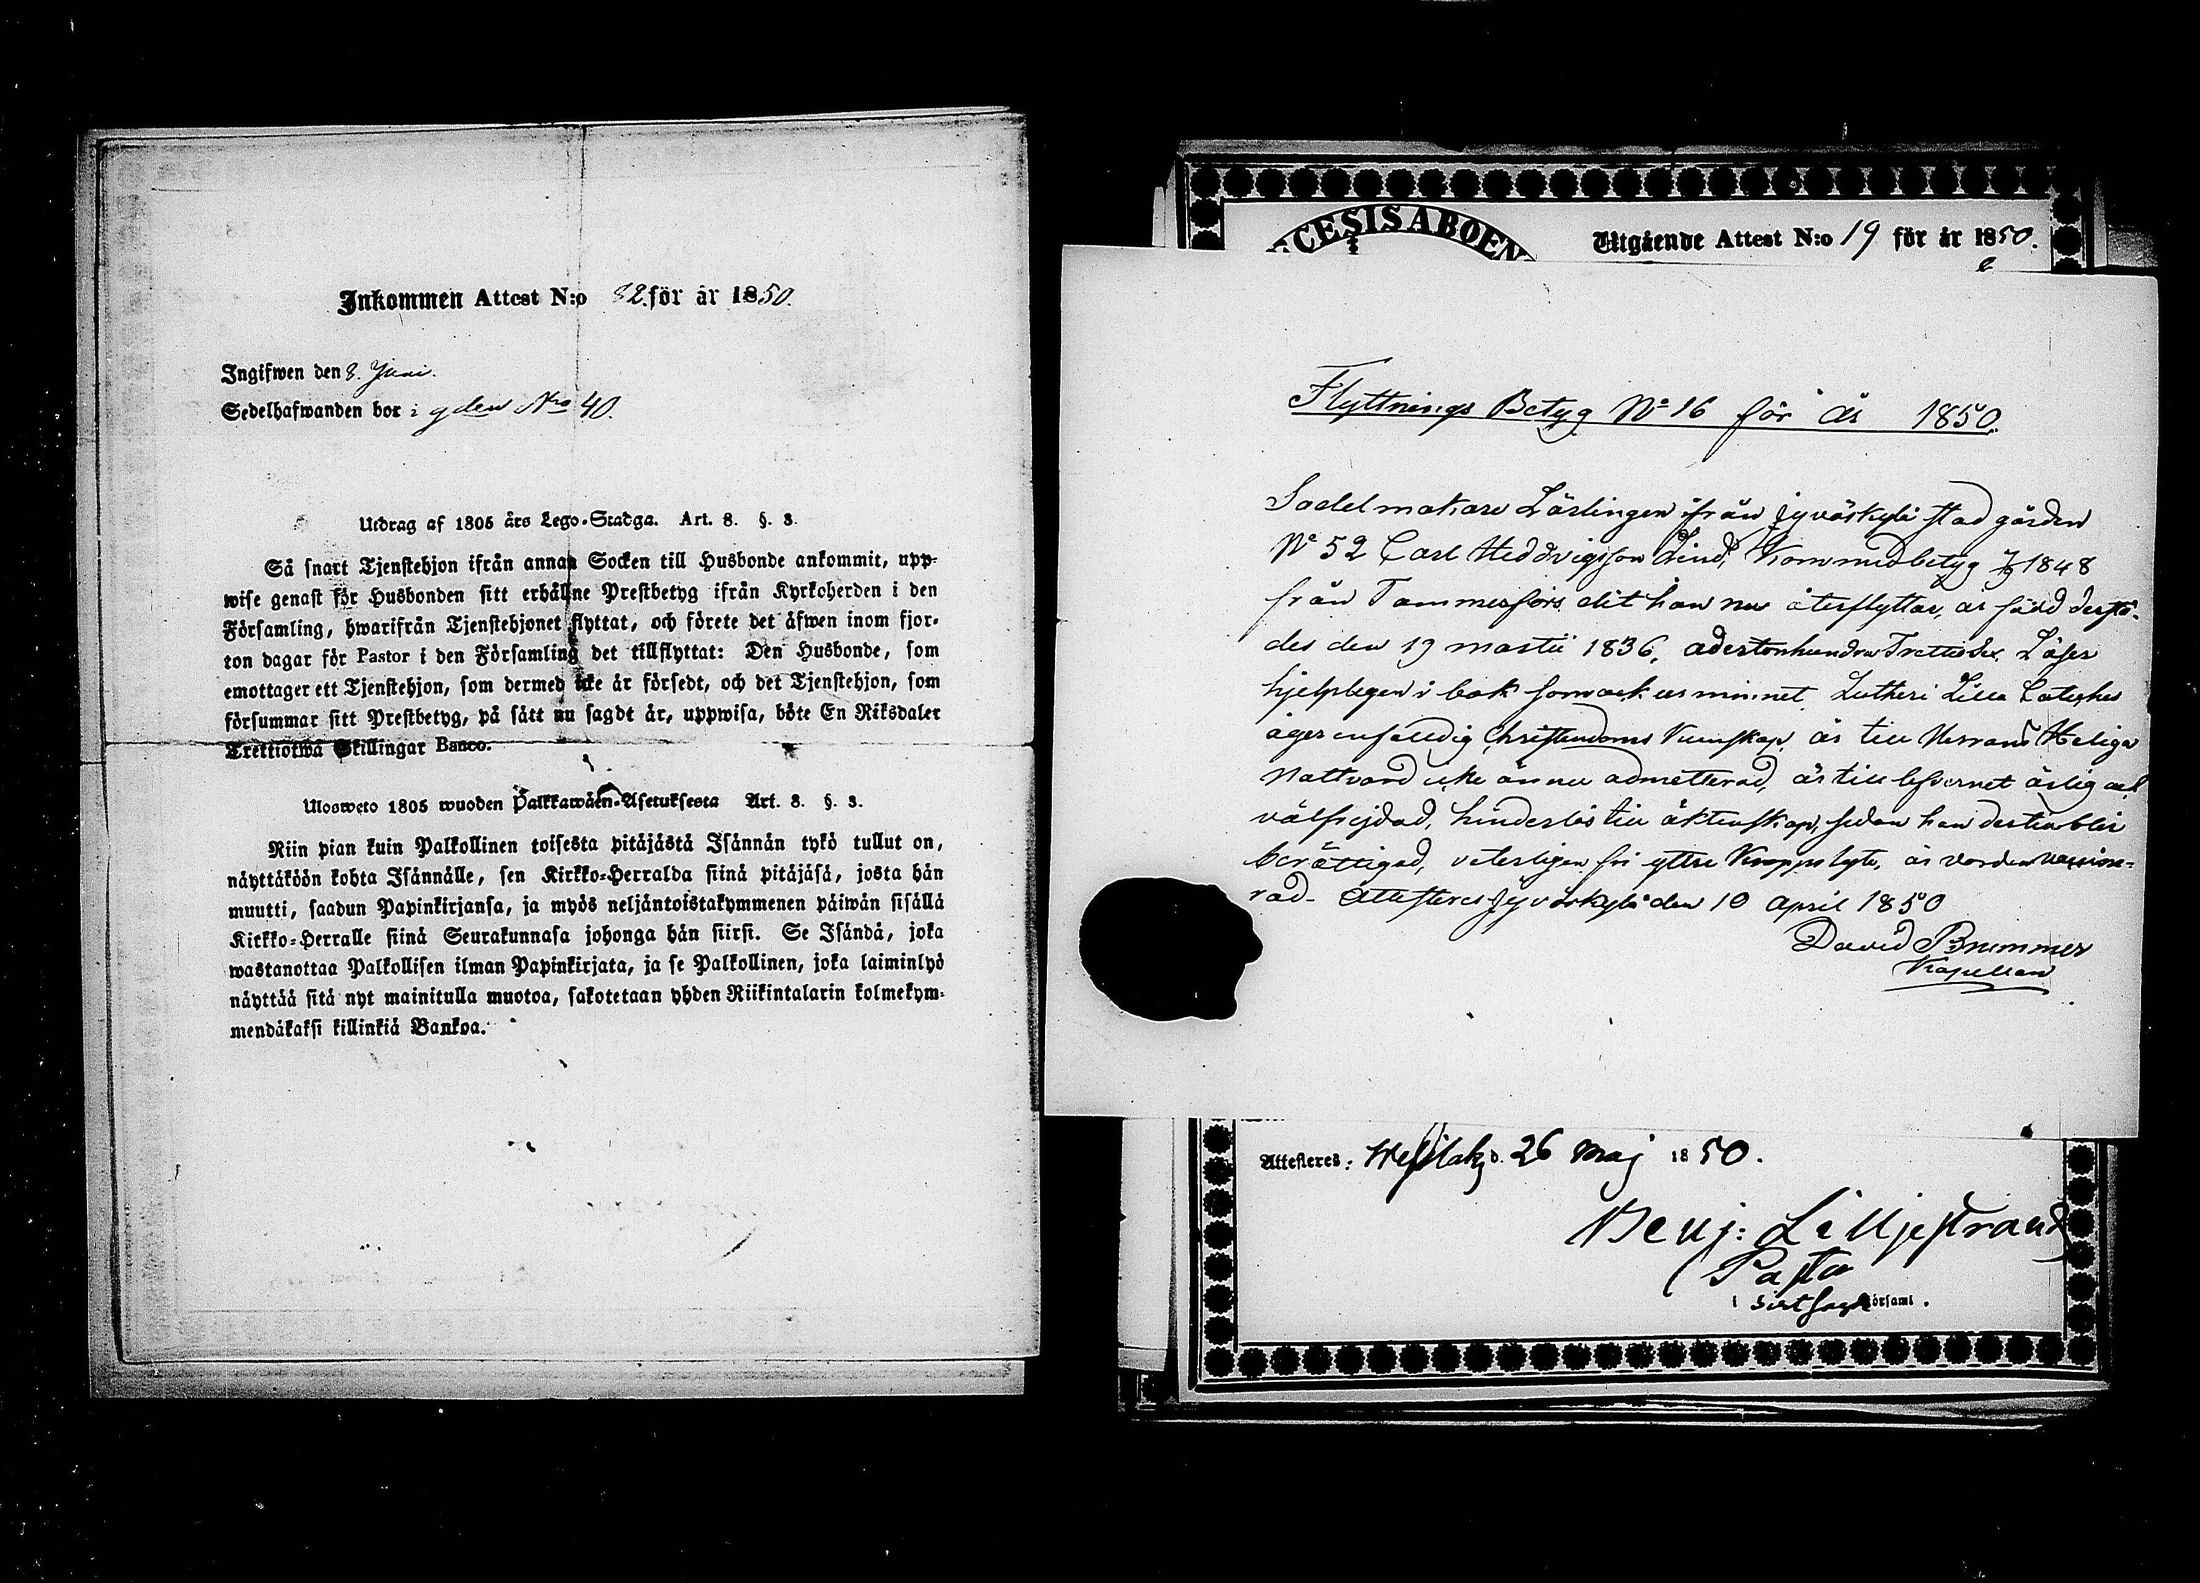 Inkommen Attest N:o 82. för år 1850.
Ingifwen den 8. Juni.
Sedelhafwanden bor i gden Nro 40.
Utdrag af 1805 års Lego-Stadga. Art. 8. §. 3.
Så snart Tjenstehjon ifrån annan Socken till Husbonde ankommit, upp-
wise genast för Husbonden sitt erhållne Prestbetyg ifrån Kyrkoherden i den
Församling, hwarifrån Tjenstehjonet flyttat, och förete det äfwen inom fjor-
ton dagar för Pastor i den Församling det tillflyttat: Den Husbonde, som
emottager ett Tjenstehjon, som dermed icke är försedt, och det Tjenstehjon, som
försummar sitt Prestbetyg, på sätt nu sagdt är, uppwisa, böte En Riksdaler
Trettiotwå Skillingar Banco.
Ulosweto 1805 wuoden Palkkawäen-Asetuksesta Art. 8. §. 3.
Niin pian kuin Palkollinen toisesta pitäjästä Isännän tykö tullut on,
näyttäköön kohta Isännälle, sen Kirkko-Herralda siinä pitäjäsä, josta hän
muutti, saadun Papinkirjansa, ja myös neljäntoistakymmenen päiwän sisällä
Kirkko-Herralle siinä Seurakunnasa johonga hän siirsi. Se Isändä, joka
wastanottaa Palkollisen ilman Papinkirjata, ja se Palkollinen, joka laiminlyö
näyttää sitä nyt mainitulla muotoa, sakotetaan yhden Riikintalarin kolmekym-
mendäkaksi killinkiä Bankoa.
CESIS ABOEN
Utgående Attest N:o 19 för år 1850.
Flyttnings Betyg No 16 för år 1850.
Sadelmakare Lärlingen ifrån Jyväskylä stad gården
No 52 Carl Heddvigsson Lind, kom med betyg 1848
från Tammerfors dit han nu återflyttar, är född derstä-
des den 19 martii 1836, adertonhundra Trettiosex. Läser
hjelpligen i bok som ock ur minnet Lutheri Lilla Cateches
äger enfaldig Christendoms kunskap, är till Herrans Heliga
Nattvard icke ännu admitterad, är till lefvernet ärlig och
välfrejdad, hinderlös till äktenskap, sedan han dertill blir
berättigad, veterligen fri yttre kroppslyte, är vorden vaccine-
rad. Attesteres Jyväskylä den 10 april 1850
David Brummer
Kapellan
Attesteres: d. 26 Maj 1850.
Benj: Lilljestrand
Pastor
i församl.